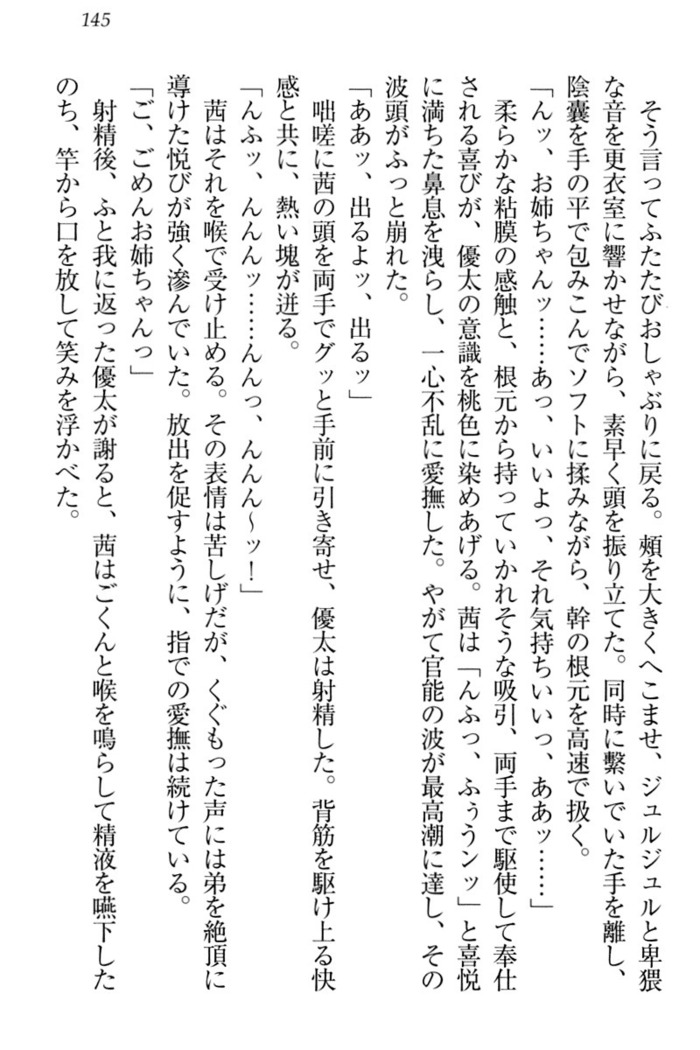 145
そう言ってふたたびおしゃぶりに戻る。頰を大きくへこませ、ジュルジュルと卑猥
な音を更衣室に響かせながら、素早く頭を振り立てた。同時に繫いでいた手を離し、
陰囊を手の平で包みこんでソフトに揉みながら、幹の根元を高速で扱く。
「んッ、お姉ちゃんッ……あっ、いいよっ、それ気持ちいいっ、ああッ……」
柔らかな粘膜の感触と、根元から持っていかれそうな吸引、両手まで駆使して奉仕
される喜びが、優太の意識を桃色に染めあげる。茜は「んふっ、ふぅうンッ」と喜悦
に満ちた鼻息を洩らし、一心不乱に愛撫した。やがて官能の波が最高潮に達し、その
波頭がふっと崩れた。
「ああッ、出るよッ、出るッ」
咄嗟に茜の頭を両手でグッと手前に引き寄せ、優太は射精した。背筋を駆け上る快
感と共に、熱い塊が迸る。
「んふッ、んんんッ……んんっ、んんん～ッ！」
茜はそれを喉で受け止める。その表情は苦しげだが、くぐもった声には弟を絶頂に
導けた悦びが強く滲んでいた。放出を促すように、指での愛撫は続けている。
「ご、ごめんお姉ちゃんっ」
射精後、ふと我に返った優太が謝ると、茜はごくんと喉を鳴らして精液を嚥下した
のち、竿から口を放して笑みを浮かべた。